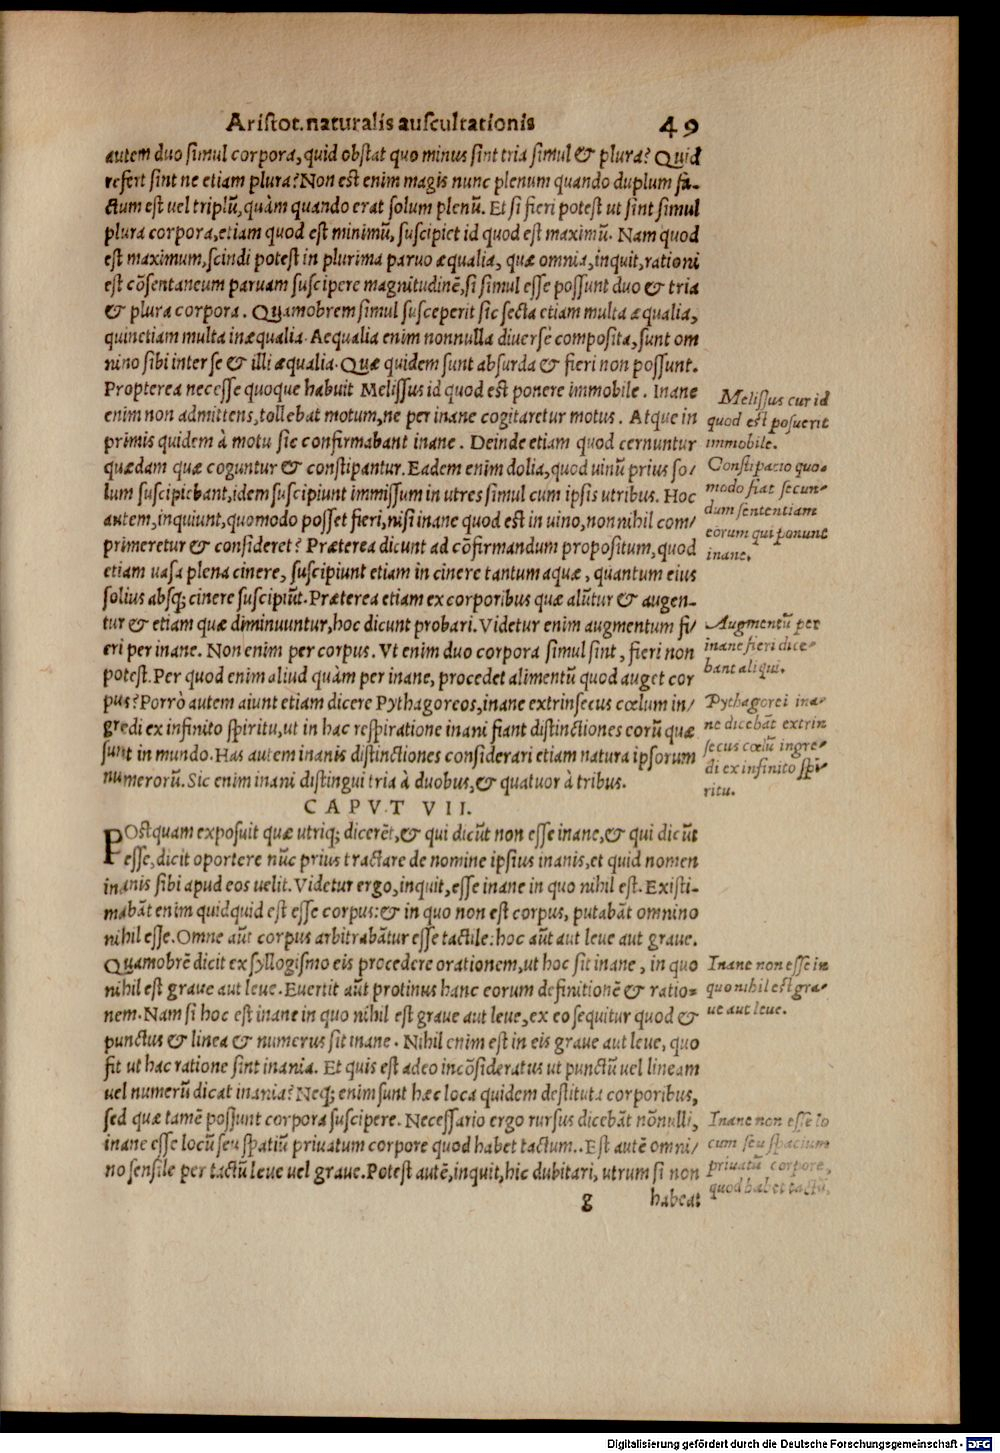 Aristot. naturalis auscultationis 49
autem duo simul corpora, quid obstat quo minus sint tria simul & plura? Quid
refert sint ne etiam plura? Non est enim magis nunc plenum quando duplum fa-
ctum est uel triplũ, quàm quando erat solum plenũ. Et si fieri potest ut sint simul
plura corpora, etiam quod est minimũ, suscipiet id quod est maximũ. Nam quod
est maximum, scindi potest in plurima paruo æqualia, quæ omnia, inquit, rationi
est cõsentaneum paruam suscipere magnitudinẽ, si simul esse possunt duo & tria
& plura corpora. Quamobrem simul susceperit sic secta etiam multa æqualia,
quinetiam multa inæqualia. Aequalia enim nonnulla diuersè composita, sunt om
nino sibi inter se & illi æqualia. Quæ quidem sunt absurda & fieri non possunt.
Propterea necesse quoque habuit Melissus id quod est ponere immobile. Inane
enim non admittens, tollebat motum, ne per inane cogitaretur motus. Atque in
primis quidem à motu sic confirmabant inane. Deinde etiam quod cernuntur
quædam quæ coguntur & constipantur. Eadem enim dolia, quod uinũ prius so/
lum suscipiebant, idem suscipiunt immissum in utres simul cum ipsis utribus. Hoc
autem, inquiunt, quomodo posset fieri, nisi inane quod est in uino, nonnihil com/
primeretur & consideret? Præterea dicunt ad cõfirmandum propositum, quod
etiam uasa plena cinere, suscipiunt etiam in cinere tantum aquæ, quantum eius
solius absq; cinere suscipiũt. Præterea etiam ex corporibus quæ alũtur & augen-
tur & etiam quæ diminuuntur, hoc dicunt probari. Videtur enim augmentum fi/
eri per inane. Non enim per corpus. Vt enim duo corpora simul sint, fieri non
potest. Per quod enim aliud quàm per inane, procedet alimentũ quod auget cor
pus? Porrò autem aiunt etiam dicere Pythagoreos, inane extrinsecus cœlum in/
gredi ex infinito spiritu, ut in hac respiratione inani fiant distinctiones eorũ quæ
sunt in mundo. Has autem inanis distinctiones considerari etiam natura ipsorum
numerorũ. Sic enim inani distingui tria à duobus, & quatuor à tribus.
CAPVT VII.
POstquam exposuit quæ utriq; dicerẽt, & qui dicũt non esse inane, & qui dicũt
esse, dicit oportere nũc prius tractare de nomine ipsius inanis, et quid nomen
inanis sibi apud eos uelit. Videtur ergo, inquit, esse inane in quo nihil est. Existi-
mabãt enim quidquid est esse corpus: & in quo non est corpus, putabãt omnino
nihil esse. Omne aũt corpus arbitrabãtur esse tactile: hoc aũt aut leue aut graue.
Quamobrẽ dicit ex syllogismo eis procedere orationem, ut hoc sit inane, in quo
nihil est graue aut leue. Euertit aũt protinus hanc eorum definitionẽ & ratio=
nem. Nam si hoc est inane in quo nihil est graue aut leue, ex eo sequitur quod &
punctus & linea & numerus sit inane. Nihil enim est in eis graue aut leue, quo
fit ut hac ratione sint inania. Et quis est adeo incõsideratus ut punctũ uel lineam
uel numerũ dicat inania? Neq; enim sunt hæc loca quidem destituta corporibus,
sed quæ tamẽ possunt corpora suscipere. Necessario ergo rursus dicebãt nõnulli,
inane esse locũ seu spatiũ priuatum corpore quod habet tactum.. Est autẽ omni/
no sensile per tactũ leue uel graue. Potest autẽ, inquit, hic dubitari, utrum si non
g habeat
Melissus cur id
quod est posuerit
immobile.
Constipatio quo-
modo fiat secun-
dum sententiam
eorum qui ponunt
inane.
Augmentũ per
inane fieri dice-
bant aliqui.
Pythagorei ina-
ne dicebãt extrin
secus cœlũ ingre-
di ex infinito spi-
ritu.
Inane non esse in
quo nihil est gra-
ue aut leue.
Inane non esse lo
cum seu spacium
priuatũ corpore,
quod habet tactũ.
Digitalisierung gefördert durch die Deutsche Forschungsgemeinschaft - DFG